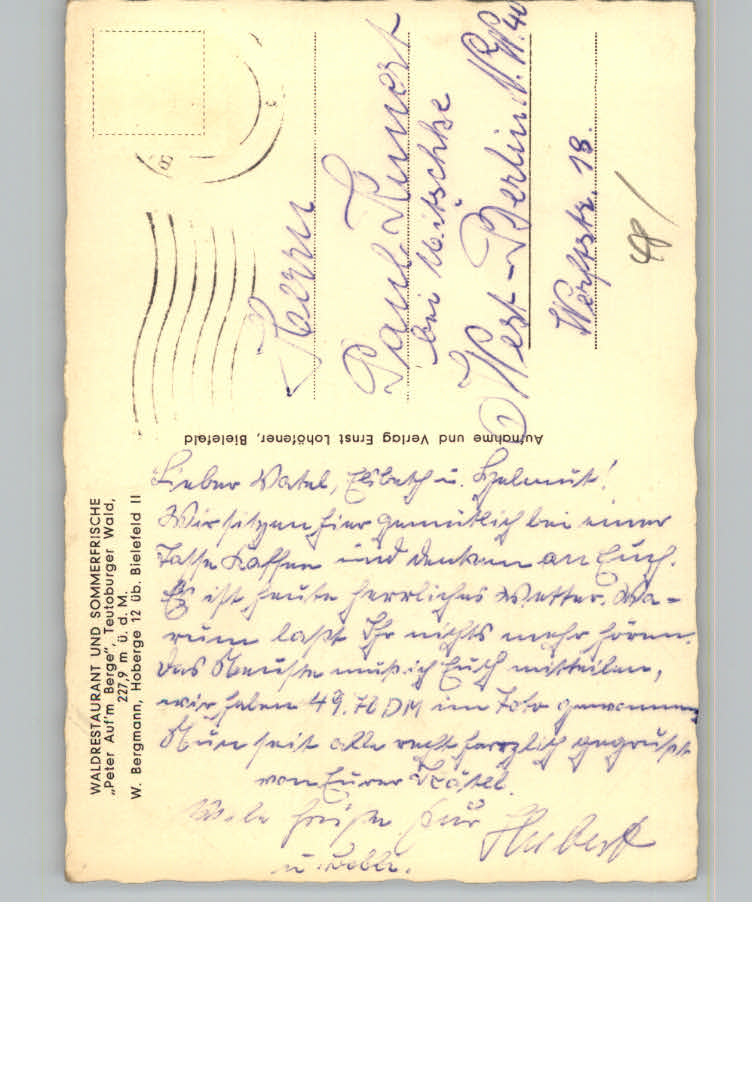 WALDRESTAURANT UND SOMMERFRISCHE
„Peter Auf'm Berge", Teutoburger Wald,
227,9 m ü. d. M.
W. Bergmann, Hoberge 12 üb. Bielefeld II
Aufnahme und Verlag Ernst Lohöfener, Bielefeld
Lieber Vatel, Elsbeth u. Helmut!
Wir sitzen hier gemütlich bei einer
Tasse Kaffee und denken an Euch.
Es ist heute herrliches Wetter. Wa-
rum laßt Ihr nichts mehr hören.
Das Neuste muß ich Euch mitteilen,
wir haben 49.70 DM im Toto gewonnen
Nun seit alle recht herzlich gegrüßt
von Eurer
Viele Grüße
Hubert
u.
Herrn
Paul
bei Nitschke
West-Berlin N.W. 40
Werftstr. 18.